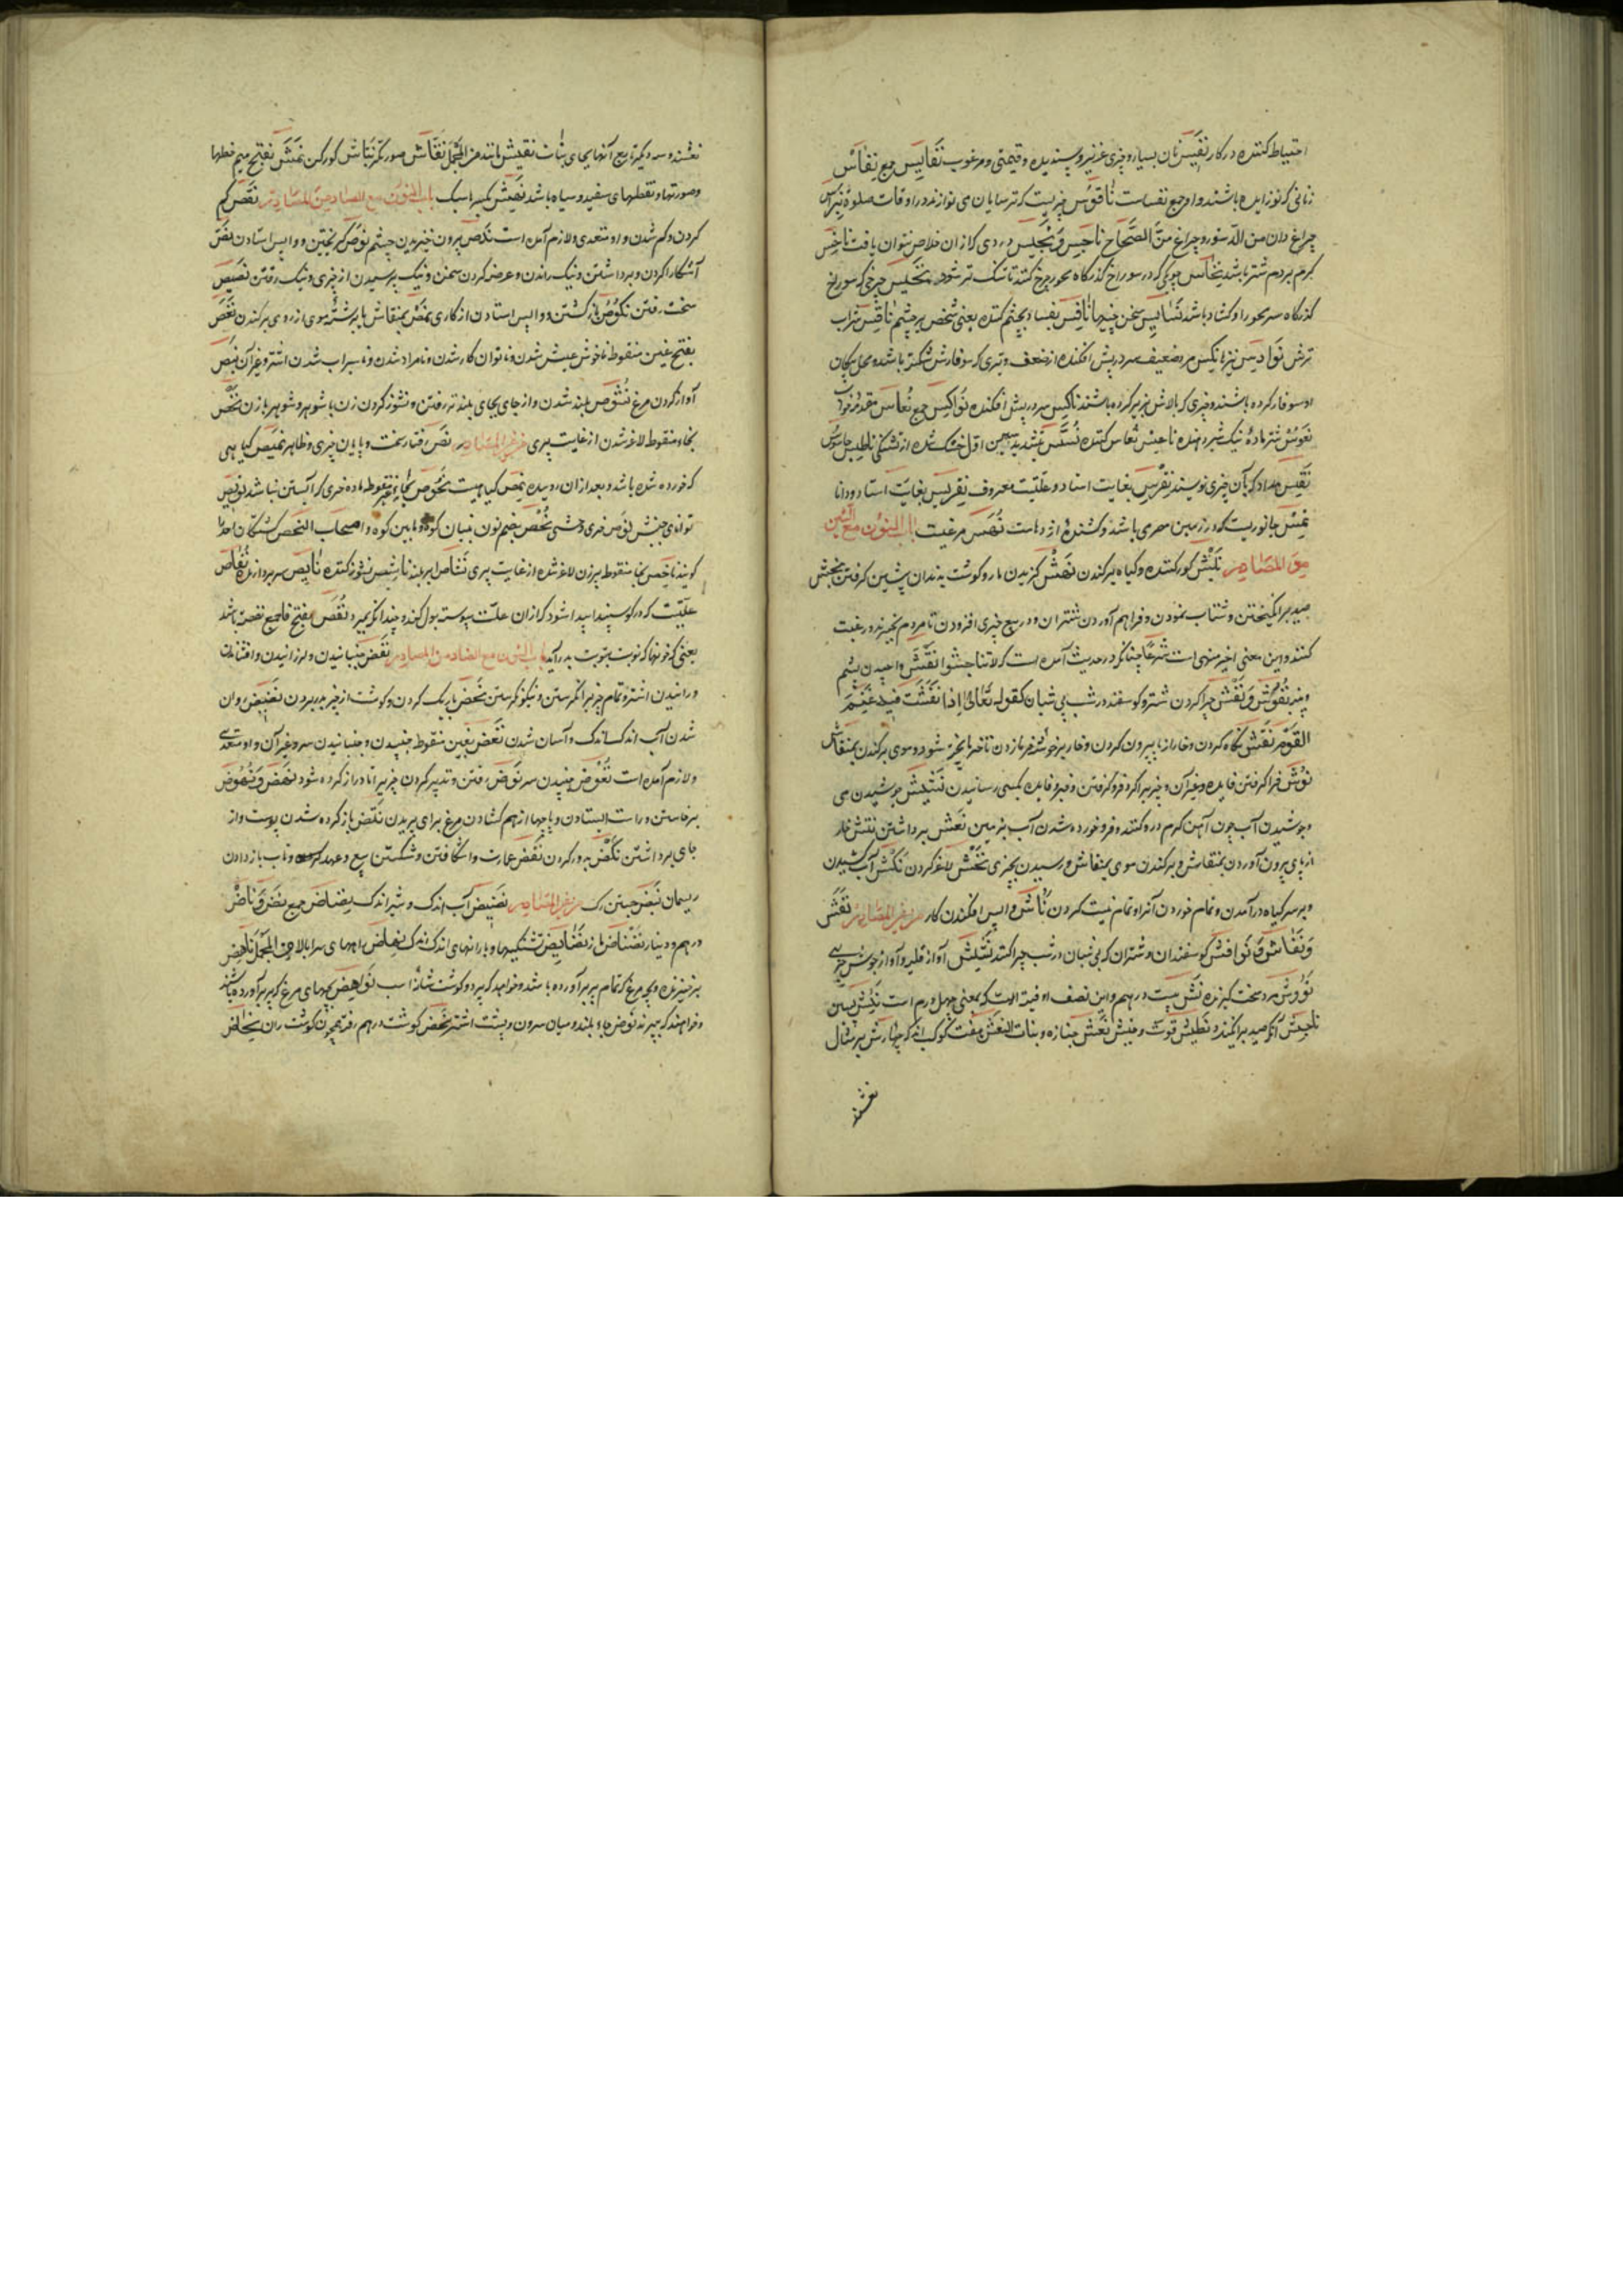 احتیاط کننده در کار نفیس مال بسیار و چیزی عزیز و پسندیده و قیمتی و مرغوب نفایس جمع نفاس
زنانی که نوزاییده باشند و او جمع نفساست ناقوس چیزیست که ترسایان می نوازند در اوقات صلوة نبراس
چراغ دان من الدستور و چراغ من الصحاح ناجس و نجیس دردی که از ان خلاص نتوان یافت ناخس
کرم بر دم شتر باشد نخاس چوبی که در سوراخ گذرگاه محور چرخ کنند تا تنک تر شود نخیس چرخی که سوراخ
گذرگاه سر محور او گشاد باشد سخن چینها نافس بفسا و بچشم کننده یعنی شخص بد چشم ناقس شراب
ترش نوادس نیزها نکس مرد ضعیف سر در پیش افکنده از ضعف و تیری که سوفارش شکسته باشد و محل پیکان
او سوفار کرده باشند و چیزی که بالاش زیر کرده باشند ناکس سر در پیش افکنده نواکس جمع نعاس مقدمه خواب
نعوس شتر ماده نیک شیر دهنده ناعس نعاس کننده نسس بتشدید سین اول خشک شده از تشنگی ناطس جاسوس
نقس مداد که بآن چیزی نویسند نقرس بغایت استاد و علتیست معروف نقریس بغایت استاد و دانا
نمس جانوریست که در زمین مصر می باشد و کشنده اژدهاست نهس مرغیست باب النون مع الشین
من المصادر نبش گور کندن و گیاه برکندن نهش گزیدن مار و گوشت به دندان پیشین گرفتن نجش
صید برانگیختن و شتاب نمودن و فراهم آوردن شتران و در بیع چیزی افزودن تا مردم بخرند و رغبت
کنند و این معنی اخیر منهی است شرعا چنانکه در حدیث آمده است که لا تناجشوا نفش واچیدن پشم
و پنبه نفوش و نفش چرا کردن شتر و گوسفند در شب بی شبان کقوله تعالی اذ نفشت فیه غنم
القوم نقش نگاه کردن و خار از پا بیرون کردن و خار بر خوشه خرما زدن تا خرما پخته شود و موی برکندن بمنقاش
نوش فرا گرفتن
و جوشیدن آب چون آهن گرم در او کنند و فرو خورده شدن آب بزمین نعش برداشتن نتش خار
از پای بیرون آوردن بمنقاش و برکندن موی بمنقاش و رسیدن بچیزی نخش لاغر کردن نکش آب کشیدن
و بر سر گیاه درآمدن و تمام خوردن آنرا و تمام نیست کردن ناش واپس افکندن کار من غیر المصادر نفش
و نفاش و نوافش گوسفندان و شتران که بی شبان در شب چرا کنند نشیش آواز قلیه و آواز جوش چیزی
نؤوش مرد سخت گیرنده نش بیست درهم و این نصف اوقیه است که بمعنی چهل درم است
ناجش آنکه صید برانگیزد نطیش قوت و جنبش نعش جنازه و بنات النعش هفت کوکب اند که چهارش بر مثال
نعشند
نعشند و سه دیگر تابع آنها بجای بنات نقیش مانند من المجمل نقاش صورتگر نباش گورکن نمش بفتح میم خطها
و صورتها و نقطهای سفید و سیاه باشد باب النون مع الصاد من المصادر نقص کم
کردن و کم شدن و او متعدی و لازم آمده است نوص گریختن و واپس استادن نص
آشکارا کردن و برداشتن و نیک راندن و عرض کردن سخن و نیک پرسیدن از چیزی و نیک رفتن نصیص
سخت رفتن نکوص باز گشتن و واپس استادن از کاری نمص بمنقاش یا برشته موی از روی برکندن نغص
بفتح غین منقوط ناخوش عیش شدن و ناتوان کار شدن و نامراد شدن و نا سیراب شدن اشتر و غیر آن نبص
آواز کردن مرغ نشوص بلند شدن و از جای بجای بلند تر رفتن و نشوز کردن زن با شوهر و شوهر با زن نخص
بخا منقوط لاغر شدن از غایت پیری من غیر المصادر نص رفتار سخت و پایان چیزی و ظاهر نمیص گیاهی
که خورده شده باشد و بعد از ان روییده نمص گیاهیست نحوص بحاء غیر منقوطه ماده خری که آبستن نباشد نویص
توانای جنبش نوص خر وحشی نحص بضم نون بنیان کوه و مابین کوه و اصحاب النحص کشتگان احد
گویند ناخص بخا منقوط پیر زن لاغر شده از غایت پیری نشاص ابر بلند ناشص نشوز کننده نقاص
علتیست که در گوسپند پیدا شود که از ان علت پیوسته بول کند و چندانکه بمیرد نقص بفتح قا جمع نقصت باشد
یعنی گروهها که نوبت بنوبت به درآید باب النون مع الضاد من المصادر نغض جنبانیدن و لرزانیدن و افشاندن
و زائیدن اشتر و تمام چیز بر نگرستن و نیکو نگرستن نحض باریک کردن و گوشت از چیز به در بردن نضیض روان
شدن آب اندک اندک و آسان شدن نغض بغین منقوط جنبیدن و جنبانیدن سر و غیر آن و او متعدی
و لازم آمده است نغوض جنبیدن سر نوض رفتن و تدبیر کردن چیزی را تا دراز کرده شود نهض و نهوض
برخاستن و راست ایستادن و پاچها از هم گشادن مرغ برای پریدن باز کرده شدن پوست و از
جای برداشتن نکض به دور کردن نقض عمارت وا شکافتن و شکستن بیع و عهد و تاب باز دادن
ریسمان نبض جستن رگ من غیر المصادر نضیض آب اندک و شیر اندک نضاض جمع نض و ناض
درهم و دینار نضناض مار نضایض تشنگیها و بارانهای اندک اندک نهاض راههای سر ابالا من المجمل ناهض
برخیزنده و بچه مرغ که تمام پر برآورده باشد و خواهد که بپرد و گوشت شانه اسب نواهض بچهای مرغ که پر برآورده باشند
و خواهند که بپرند نوض جای بلند و میان سرون و پشت اشتر نحض گوشت درهم رفته همچون گوشت ران نحاض